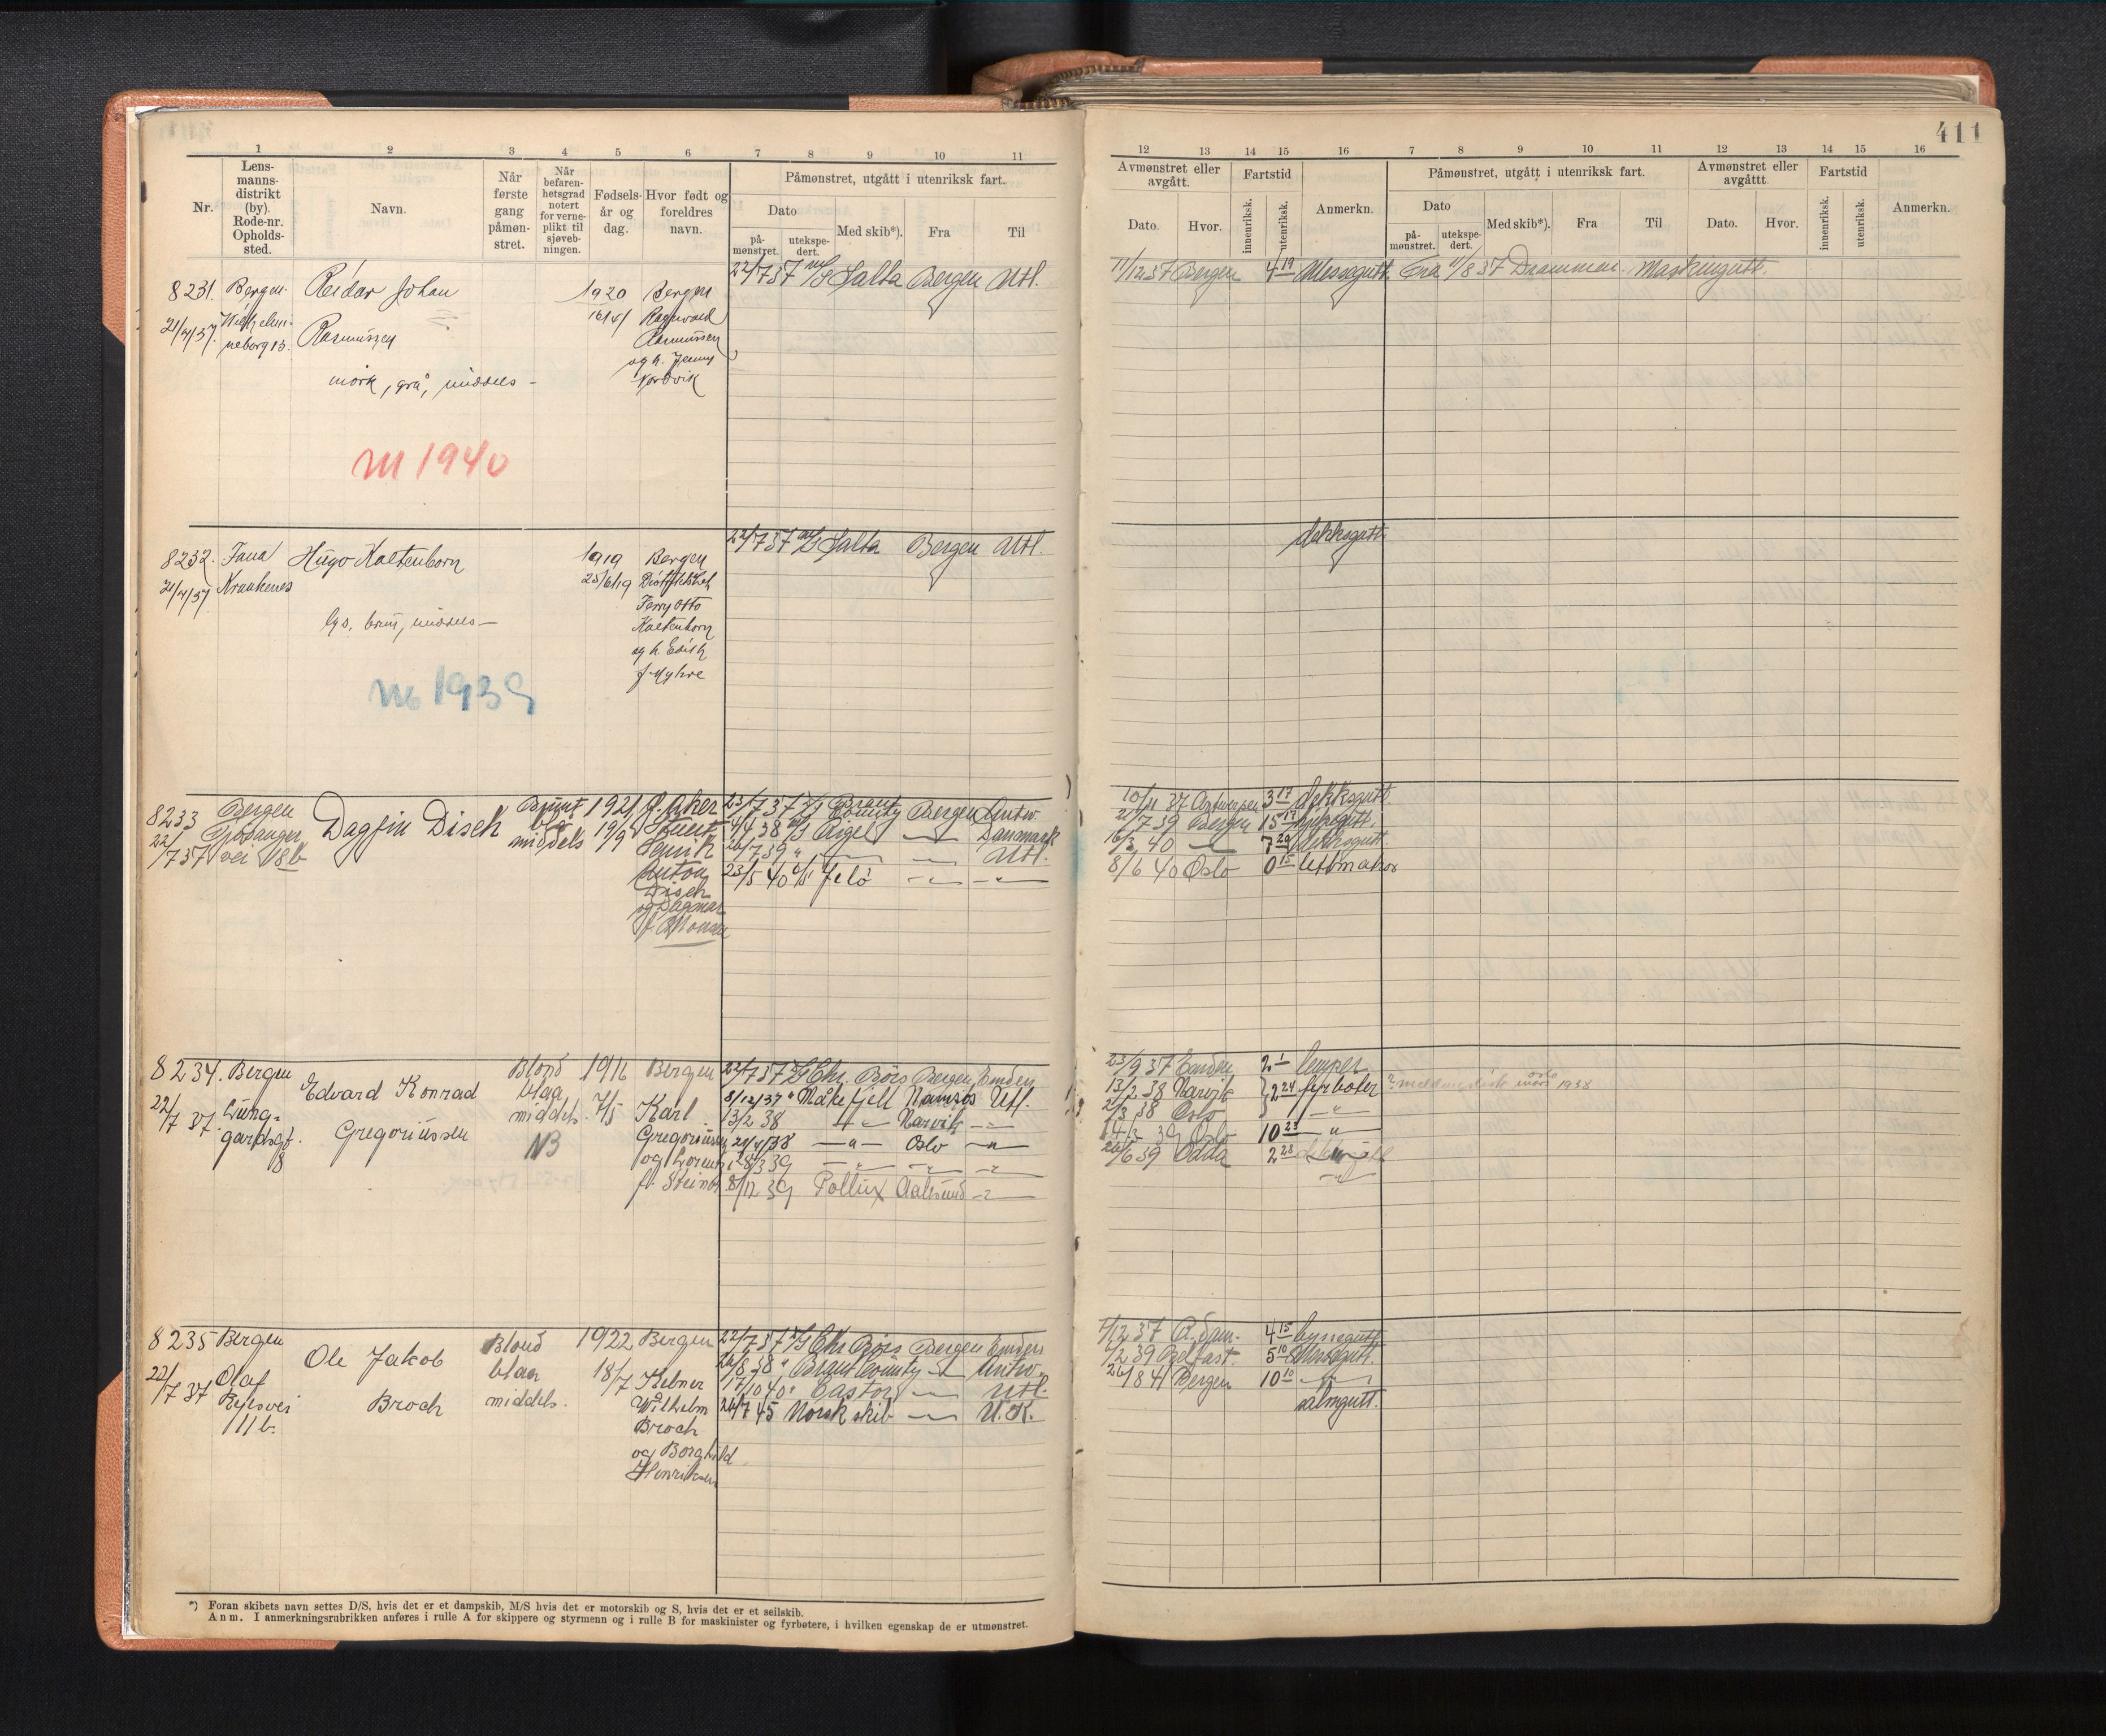 411
1 2 3 4 5 6 7 8 9 10 11
Nr.
Lens-
manns-
distrikt
(by).
Rode-nr.
Opholds-
sted.
Navn.
Når
første
gang
påmøn-
stret.
Når
befaren-
hetsgrad
notert
for verne-
plikt til
sjøveb-
ningen.
Fødsels-
år og
dag.
Hvor født og
foreldres
navn.
Påmønstret, utgått i utenriksk fart.
Dato
på-
mønstret.
utekspe-
dert.
Med skib*).
Fra
Til
12 13 14 15 16 7 8 9 10 11 12 13 14 15 16
Avmønstret eller
avgått.
Dato.
Hvor.
Fartstid
innenriksk.
utenriksk.
Anmerkn.
Påmønstret, utgått i utenriksk fart.
Dato
på-
mønstret.
utekspe-
dert.
Med skib*).
Fra
Til
Avmønstret eller
avgåttt.
Dato.
Hvor.
Fartstid
innenriksk.
utenriksk.
Anmerkn.
8231. Bergen. Reidar Johan 1920 Bergen
21/7/37. Rasmussen 16/4 Ragnvald
neborg 13. Rasmussen
og h. Jenny
mørk, grå, middels - Nordvik
m 1940
22/7 37 M/S Salta Bergen Utl.
11/12 37 Bergen 4 19 Messegutt Fra 11/8 37 Drammen Maskingutt.
8232. Fana Hugo Kaltenborn 1919 Bergen
21/7/37 Kraakenes 25/6 19
Ferry Otto
lys, brun, middels - Kaltenborn
og h. Edith
f. Myhre
m 1939
22/7 37 M/S Salta Bergen Utl.
dekksgutt.
8233 Bergen Dagfin Disch Brunt 1921 Aker
22/7 37 vei 18b blå 19/9
middels Henrik
Anton
Disch
og Dagmar
23/7 37 Brant County Bergen Antw.
4/4 38 Rigel Danmark
26/7 39 " Utl.
23/5 40 Jelø
10/11 37 Antwerpen 3 17 dekksgutt.
21/7 39 Bergen 15 17
16/3 40 7 20 dekksgutt.
8/6 40 Oslo 0 15 lettmatros
8234. Bergen Edvard Konrad Blond 1916 Bergen
22/7 37. Lung- blaa
gardsgt. Gregoriussen middels 7/5 Karl
8 N3 Gregoriussen
og
f. Steinbø
22/7 37 Chr. Börs Bergen Emden
8/12/37 " Måkefjell Namsos Utl.
13/2 38 — " — Narvik — " —
29/4/38 — " — Oslo — " —
28/3 39 — " —
8/12 39 Pollux Aalesund — " —
23/9 37 Emden 2 1 lemper
13/2 38 Narvik 2 24 fyrbøter
2/3 38 Oslo — " —
14/3 39 Oslo 10 23 — " —
26/6 39 Odda 2 28
8235 Bergen Ole Jakob Blond 1922 Bergen
22/7 37 Olaf Broch blaa 18/7
Ryesvei middels. Wilhelm
11 b. Broch
og Borghild
Henriksen
22/7 37 Chr Börs Bergen Emden
26/8 38 " Brant County Antw.
17/10 40 " Castor Utl.
26/7 45 Norsk skib U.K.
7/12 37 R.dam. 4 15 byssegutt
6/2 39 Belfast. 5 10 Messegutt.
26/8 41 Bergen 10 10 — " —
salongutt.
*) Foran skibets navn settes D/S, hvis det er et dampskib, M/S hvis det er motorskib og S, hvis det er et seilskib.
Anm. I anmerkningsrubrikken anføres i rulle A for skippere og styrmenn og i rulle B for maskinister og fyrbøtere, i hvilken egenskap de er utmønstret.